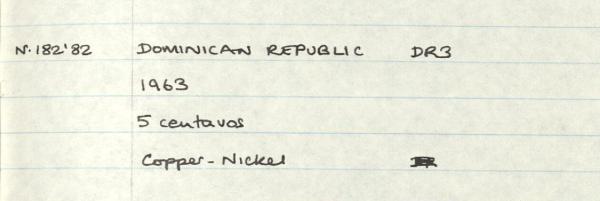 N.182'82 DOMINICAN REPUBLIC DR3
1963
5 centavos
Copper-Nickel